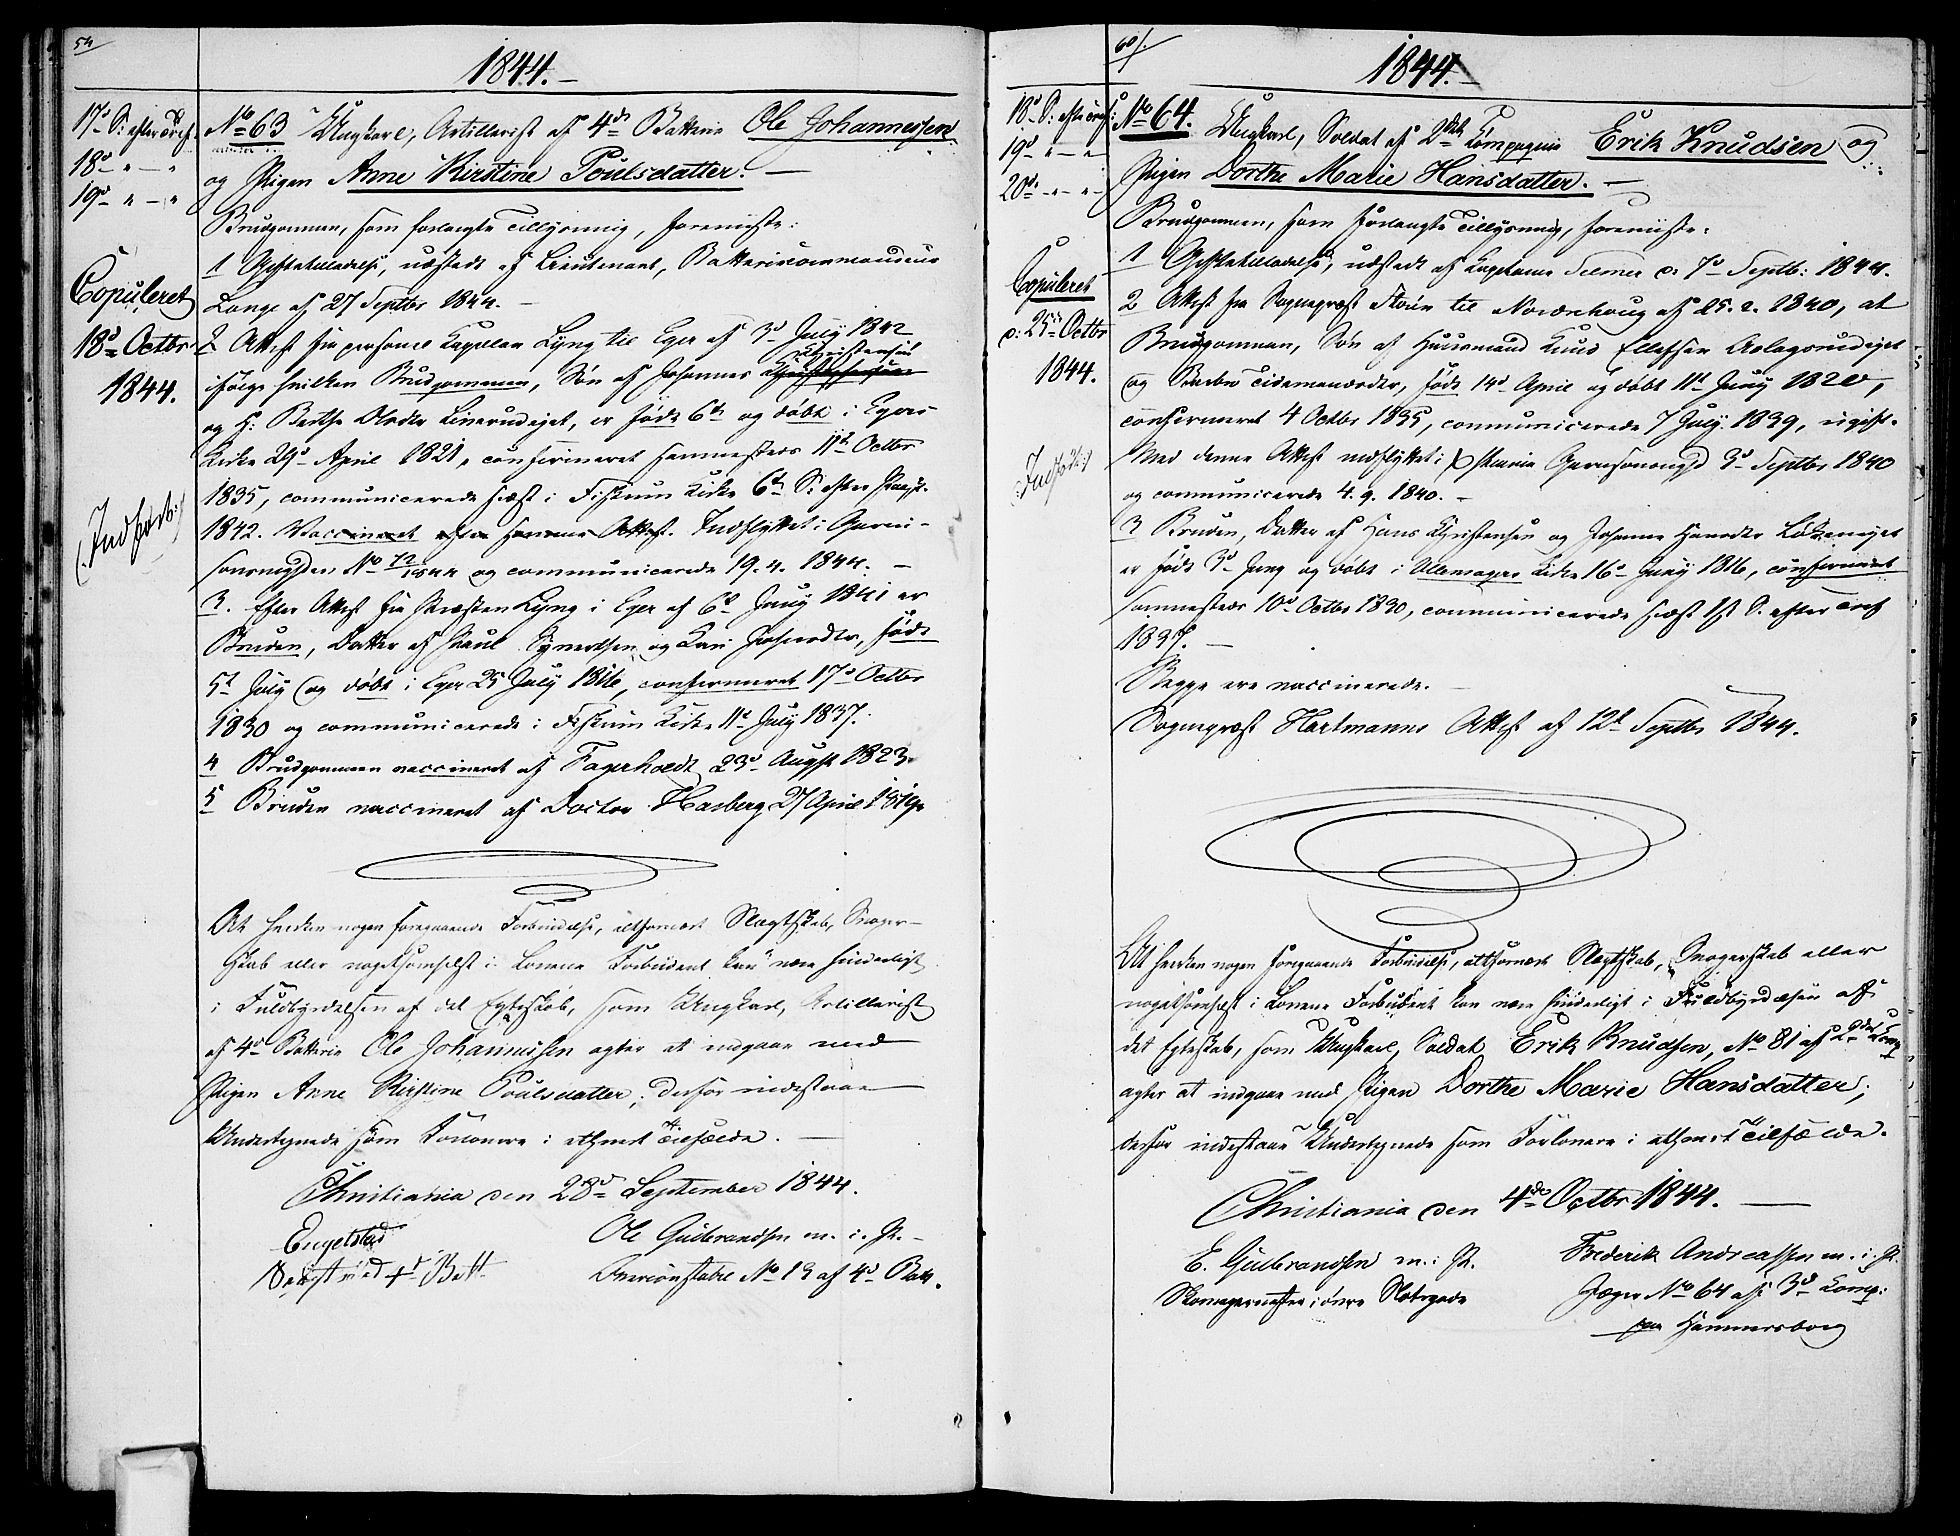 54
1844.
17d S: efter Tref.
18d " — "
19d " — "
Copuleret
18d Octbr
1844.
(: Indført :)
No 63 Ungkarl, Artillerist af 4de Batterie Ole Johannessen
og Pigen Anne Kirstine Poulsdatter. —
Brudgommen, som forlangte Tillysning, foreviste:
1 Ægtetilladelse, udstedt af Lieutenant, Battericommandeur
Lange af 27 Septbr 1844. —
2 Attest fra personel Kapellan Lyng til Eger af 3d July 1842
ifølge hvilken Brudgommen, Søn af Johannes Christensen
og H: Berthe Olsdtr Linerudeiget, er født 6te og døbt i Egers
Kirke 29d April 1821, confirmeret sammesteds 11te Octbr
1835, communicerede sidst i Fiskum Kirke 6te S: efter Paaske
1842. Vaccineret efter samme Attest. Indflyttet i Garni-
sonsmgden No 72/1844 og communicerede 19. 4. 1844. —
3. Efter Attest fra Præsten Lyng i Eger af 6d Juny 1841 er
Bruden, Datter af Paul og Kari født
5t July og døbt i Eger 25 July 1816, confirmeret 17d Octbr
1830 og communicerede i Fiskum Kirke 11te July 1837.
4 Brudgommen vaccineret af Fagerholdt 23d Augst 1823.
5 Bruden vaccineret af Doctor Hasberg 27 April 1819.
At hverken nogen foregaaende Forbindelse, altfornært Slægtskab, Svoger-
skab eller nogetsomhelst i Lovene Forbudent kan være hinderligt
i Fuldbyrdelsen af det Egteskab, som Ungkarl, Artillerist
af 4d Batterie Ole Johannessen agter at indgaae med
Pigen Anne Kirstine Poulsdatter; derfor indestaae
Undertegnede som Forlovere i ethvert Tilfælde. —
Christiania den 28d September 1844.
Engelstad
Ole Gulbrandsen m. i. P. —
No 13 af 4d Batt.
60/.
1844.
18d S: efter Tref:
19d " — "
20de " — "
Copuleret
d: 25de Octbr
1844.
(: Indført :)
No 64. Ungkarl, Soldat af 2det Kompagnie Erik Knudsen og
Pigen Dorthe Marie Hansdatter. —
Brudgommen, som forlangte Tillysning, foreviste:
1 Ægtetilladelse, udstedt af Kapitaine d. 7d Septb: 1844.
2 Attest fra Sognepræst til Norderhoug af 25. 2. 1840, at
Brudgommen, Søn af Huusmand Knud Ellefsen
og Barbro Tidemandsdtr, født 14d April og døbt 11te Juny 1820,
confirmeret 4 Octbr 1835, communicerede 7 July 1839, ugift.
Med denne Attest indflyttet i Garnisonsmgd 3d Septbr 1840
og communicerede 4. 9. 1840. —
3 Bruden, Datter af Hans Christensen og Johanne
er født 3d Juny og døbt i Ullensagers Kirke 16d Juny 1816, confirmeret
sammesteds 10d Octbr 1830, communicerede sidst 1st S. efter Tref
1837. —
Begge ere vaccinerede. —
Sognepræst Hartmanns Attest af 12te Septbr 1844.
At hverken nogen foregaaende Forbindelse, altfornært Slægtskab, Svogerskab eller
nogetsomhelst i Lovene Forbudent kan være hinderligt i Fuldbyrdelsen af
det Egteskab, som Ungkarl, Soldat Erik Knudsen, No 81 af 2det Komp
agter at indgaae med Pigen Dorthe Marie Hansdatter;
derfor indestaae Undertegnede som Forlovere i ethvert Tilfælde.
Christiania den 4de Octbr 1844. —
E. Gulbrandsen m. i. P.
Skomagermester i øvre Slotsgade
Frederik Andreassen m. i. P.
Jæger No 64 af 3d Komp:
paa Hammersborg